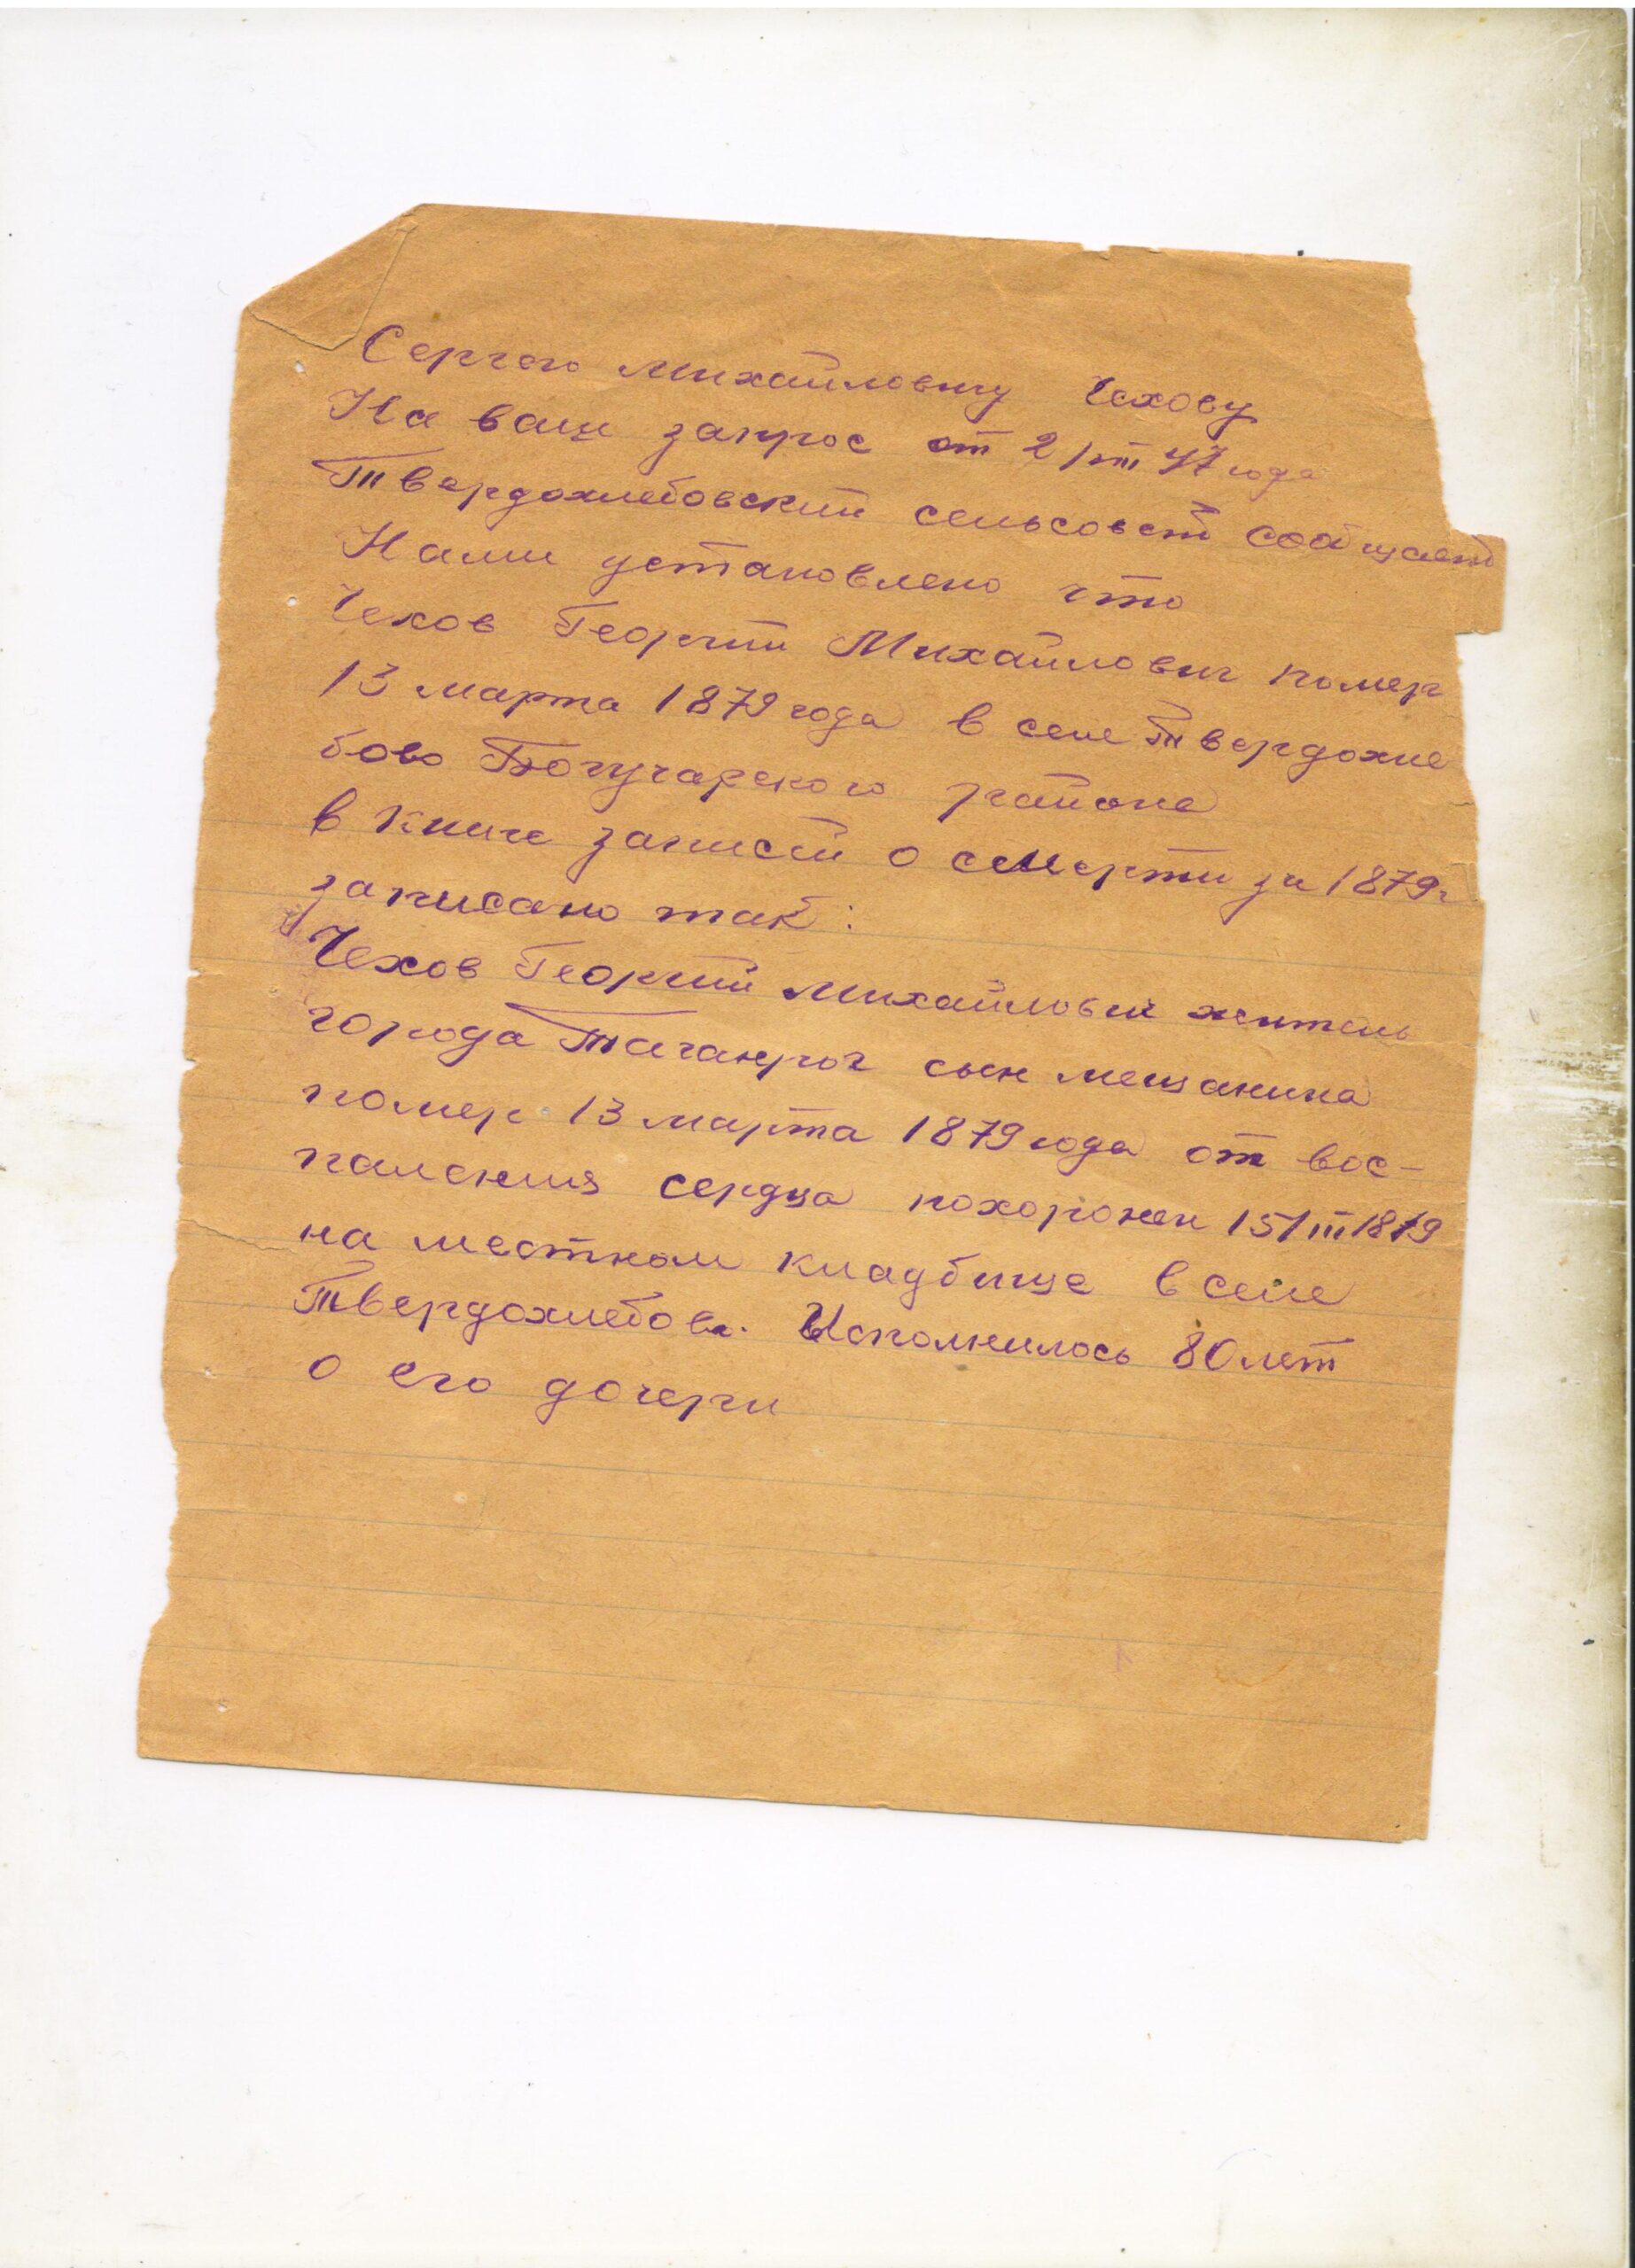 Сергею Михайловичу Чехову
На ваш запрос от 2/III 47 года
Твердохлебовский сельсовет сообщает
Нами установлено что
Чехов Георгий Михайлович помер
13 марта 1879 года в селе Твердохле
бово Богучарского района
в книге записей о смерти за 1879г
записано так:
Чехов Георгий Михайлович житель
города Таганрог сын мещанина
помер 13 марта 1879 года от вос-
паления сердца похоронен 15/III 1879
на местном кладбище в селе
Твердохлебово. Исполнилось 80 лет
о его дочери